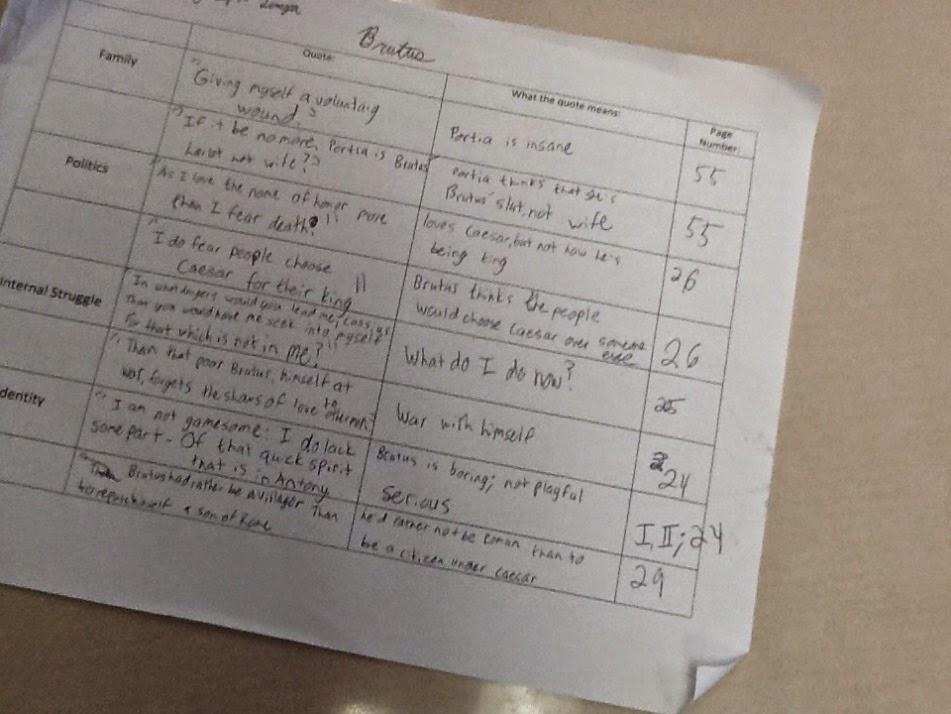 Brutus
Quote:
What the quote means:
Page
Number:
Family
"Giving myself a voluntary
wound"
Portia is insane
55
"If it be no more, Portia is Brutus'
harlot not wife"
Portia thinks that she's
Brutus' slut, not wife
55
Politics
"As I love the name of honor more
than I fear death"
loves Caesar, but not how he's
being king
26
"I do fear people choose
Caesar for their king"
Brutus thinks the people
would choose Caesar over someone
else
26
Internal Struggle
"In what dangers would you lead me, Cassius
That you would have me seek into myself
For that which is not in me?"
What do I do now?
25
"Than that poor Brutus, himself at
war, forgets the shows of love to other men"
War with himself
24
dentity
"I am not gamesome: I do lack
some part - Of that quick spirit
that is in Antony
Brutus is boring; not playful
serious
I, II; 24
Brutus had rather be a villager Than
to repute himself a son of Rome
he'd rather not be Roman than to
be a citizen under Caesar
29